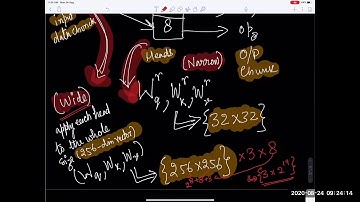 input
data chunk
8
O/P
Heads
(Narrow)
O/P
Chunk
W_q^r, W_k^r, W_v^r
{32x32}
(Wide)
apply each head
to the whole
(256-dim vector)
(W_q, W_k, W_v)
{256x256}
x 3 x 8
{3x2^19}
2020-08-24 09:24:14